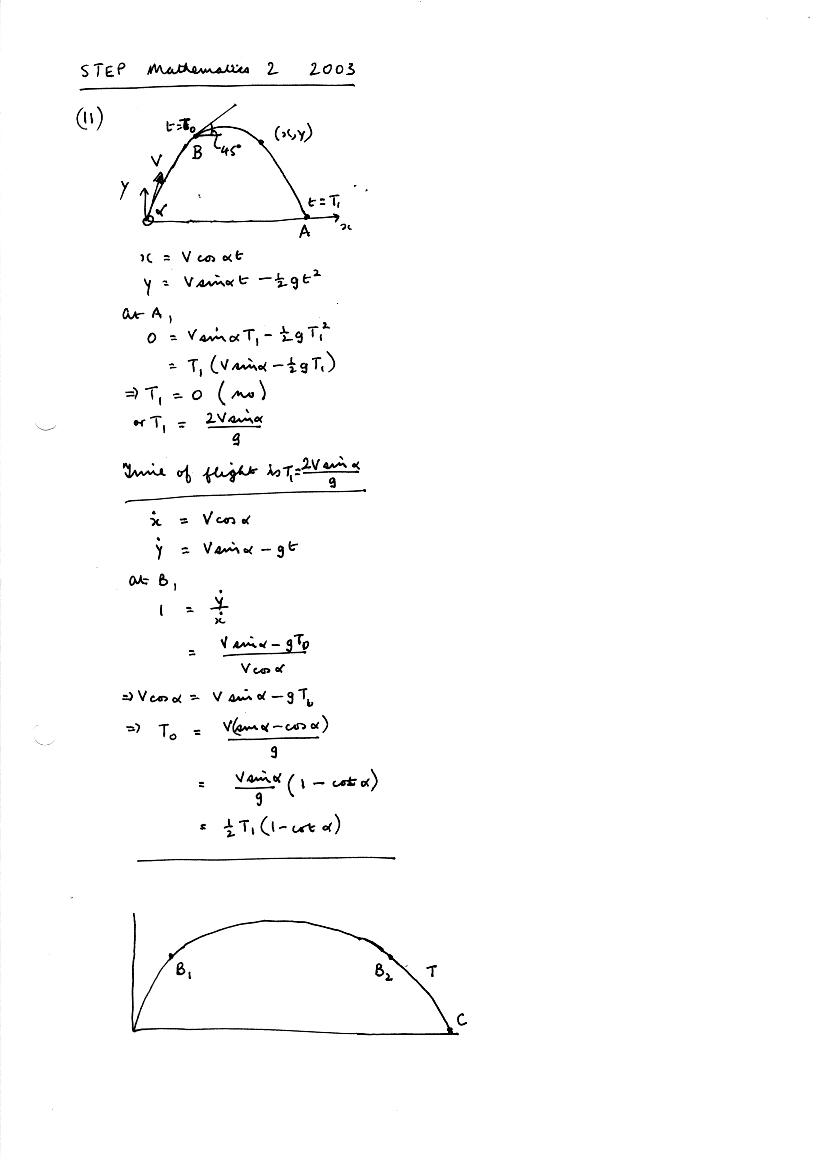 STEP Mathematics 2 2003
(11)
t=T₀
(x,y)
B
45°
V
y
α
t=T₁
A
x
x = V cos αt
y = V sinαt − ½gt²
at A,
0 = V sinαT₁ − ½gT₁²
= T₁(V sinα − ½gT₁)
⇒ T₁ = 0 (no)
or T₁ = 2V sinα / g
Time of flight is T₁ = 2V sin α / g
ẋ = V cos α
ẏ = V sin α − gt
at B,
1 = ẏ / ẋ
= (V sin α − gT₀) / V cos α
⇒ V cos α = V sin α − gT₀
⇒ T₀ = V(sin α − cos α) / g
= V sin α / g (1 − cot α)
= ½T₁(1 − cot α)
B₁
B₂
T
C